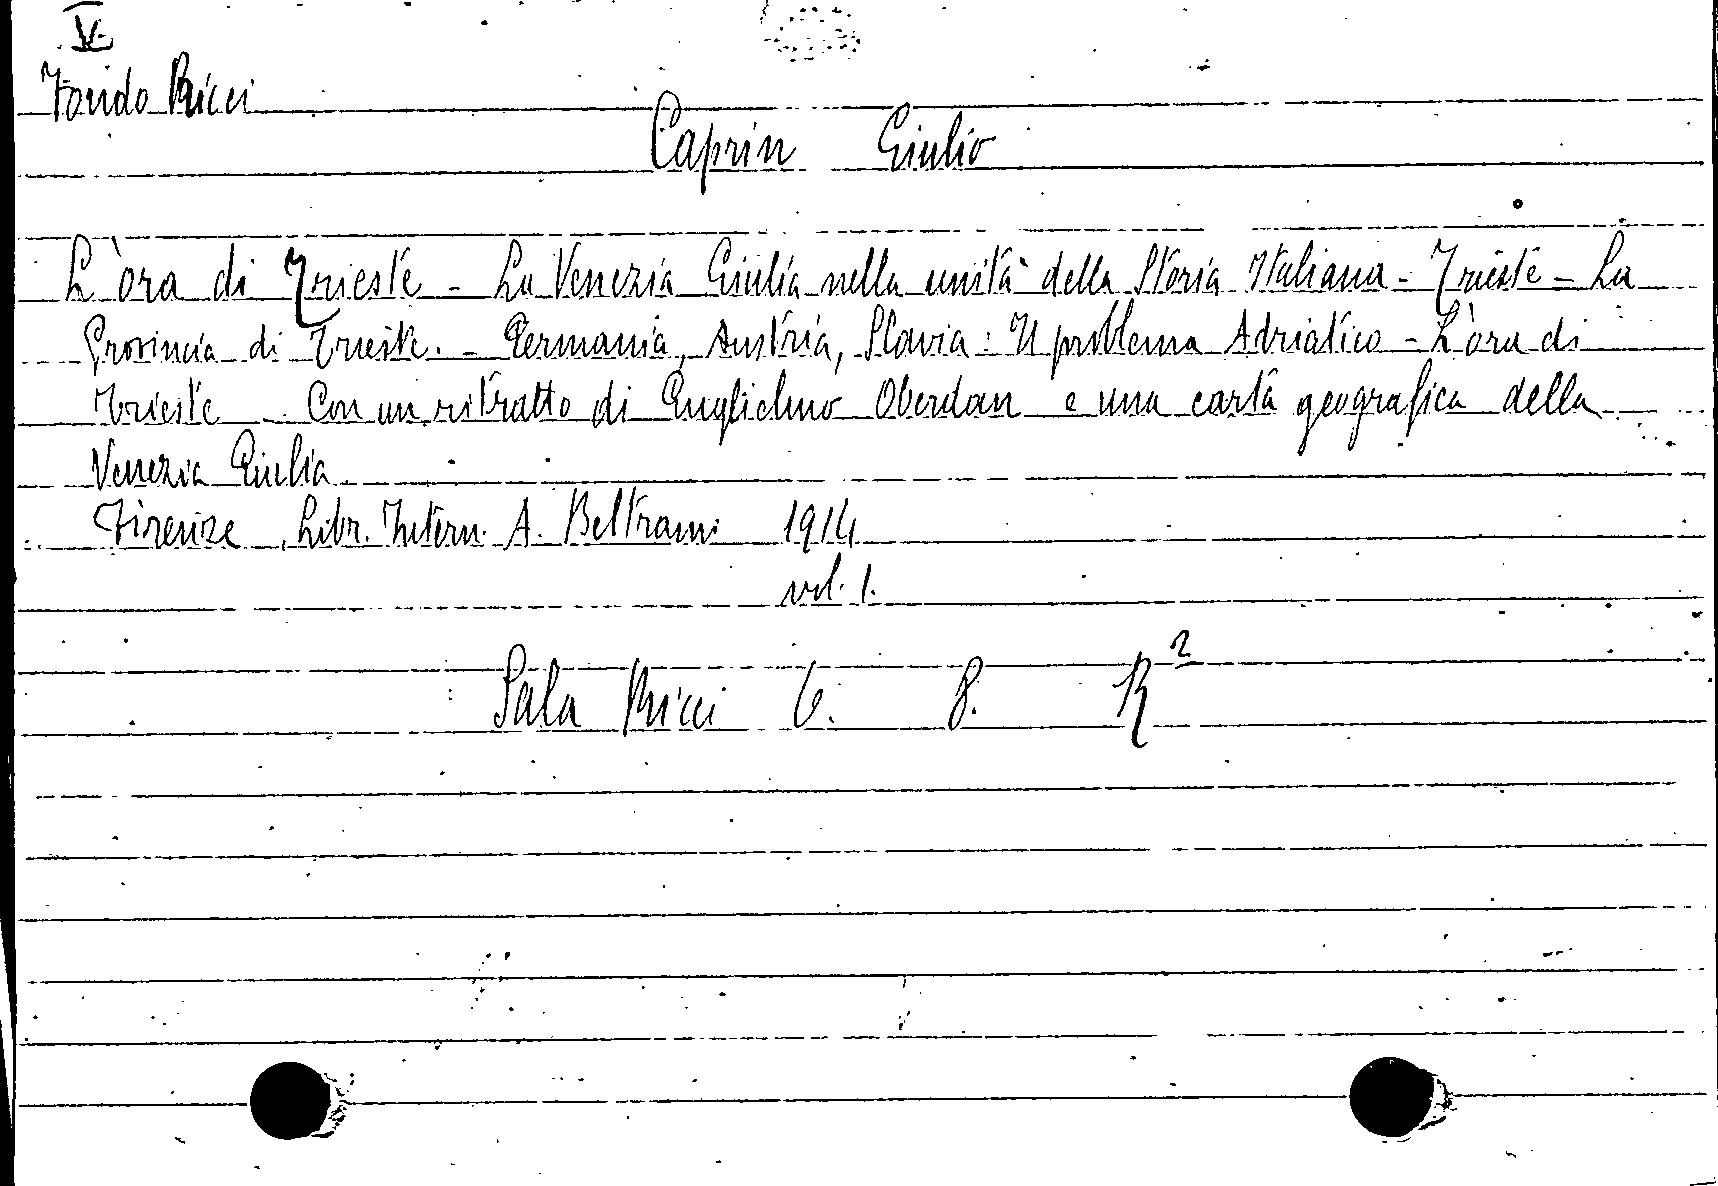 V.
Fondo Ricci
Caprin Giulio
L'ora di Trieste - La Venezia Giulia nella unità della Storia Italiana - Trieste - La
Provincia di Trieste. - Germania, Austria, Slavia: Il problema Adriatico - L'ora di
Trieste - Con un ritratto di Guglielmo Oberdan e una carta geografica della
Venezia Giulia
Firenze, Libr. Intern. A. Beltrami 1914
vol. 1.
Sala Ricci 6. 8. R²